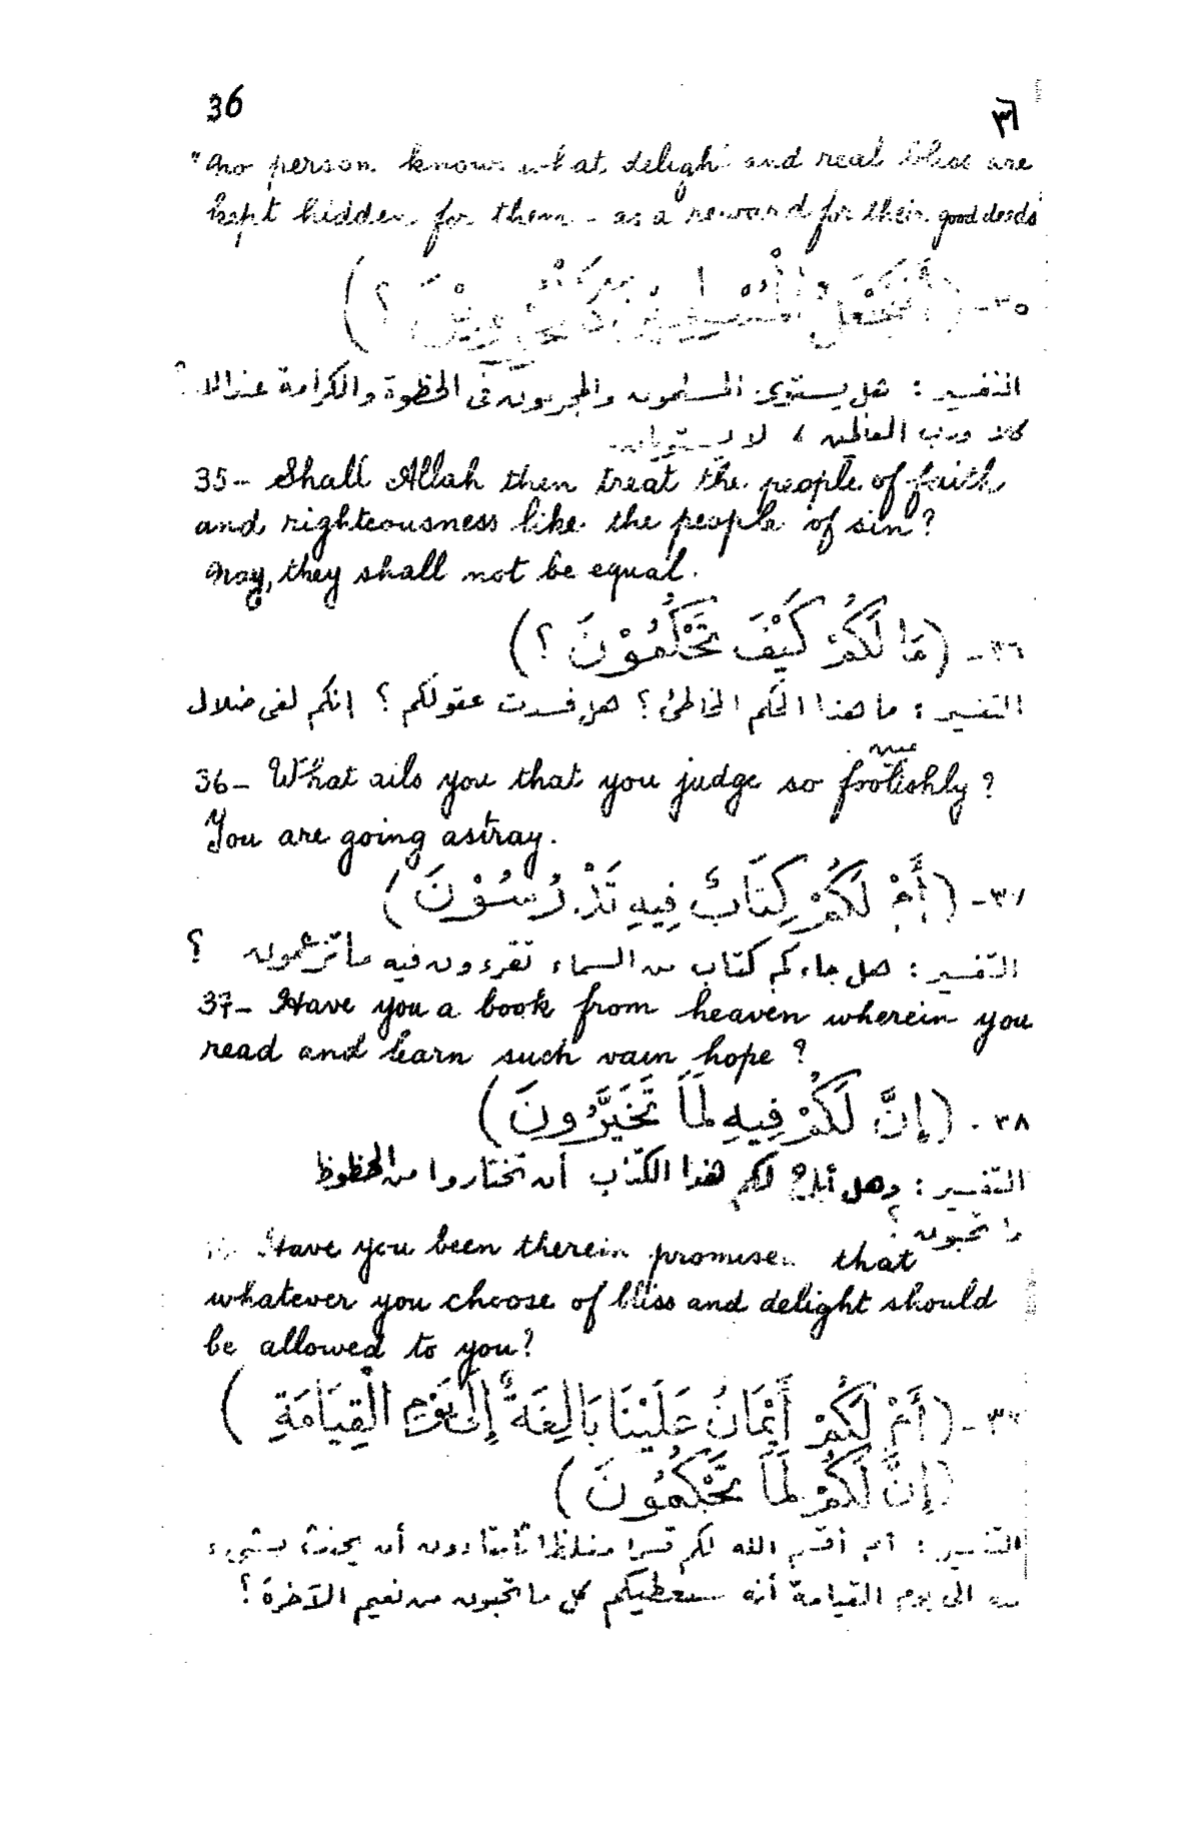 36
٣٦
"No person knows what delight and real bliss are
kept hidden for them - as a reward for their good deeds"
٣٥- (أَفَنَجْعَلُ الْمُسْلِمِيْنَ كَالْمُجْرِمِيْنَ ؟)
التفسير : هل يستوي المسلمون والمجرمون في الحظوة والكرامة عند الله ؟
كلا ورب العالمين ، لا يستويان.
35- Shall Allah then treat the people of faith
and righteousness like the people of sin?
Nay, they shall not be equal.
٣٦- (مَا لَكُمْ كَيْفَ تَحْكُمُوْنَ ؟)
التفسير : ما هذا الحكم الخاطئ ؟ هل فسدت عقولكم ؟ إنكم لفى ضلال
مبين
36- What ails you that you judge so foolishly?
You are going astray.
٣٧- (أَمْ لَكُمْ كِتَابٌ فِيهِ تَدْرُسُوْنَ)
التفسير : هل جاءكم كتاب من السماء تقرءون فيه ما تزعمون ؟
37- Have you a book from heaven wherein you
read and learn such vain hope?
٣٨- (إِنَّ لَكُمْ فِيهِ لَمَا تَخَيَّرُونَ)
التفسير : وهل لكم هذا الكتاب أن تختاروا من الحظوظ
ما تحبون ؟
Have you been therein promised that
whatever you choose of bliss and delight should
be allowed to you?
٣٩- (أَمْ لَكُمْ أَيْمَانٌ عَلَيْنَا بَالِغَةٌ إِلَى يَوْمِ الْقِيَامَةِ)
(إِنَّ لَكُمْ لَمَا تَحْكُمُونَ)
التفسير : أم أقسم الله لكم قسما مغلظا أن
الى يوم القيامة أنه سيعطيكم كل ما تحبون من نعيم الآخرة ؟